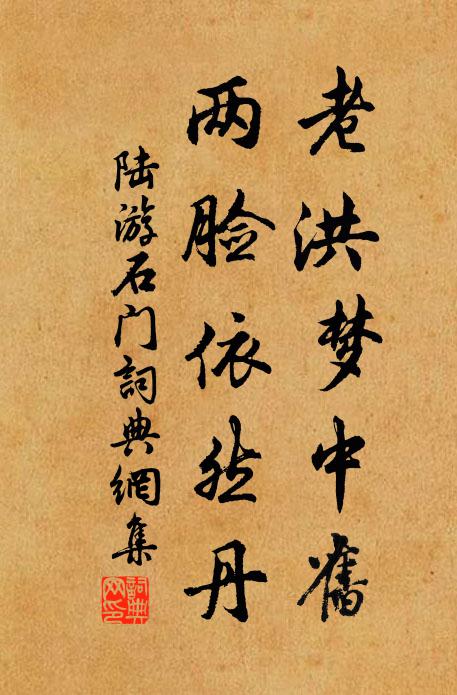 老洪梦中舊
两脸依然丹
陆游石门詞典網集
詞典
网印